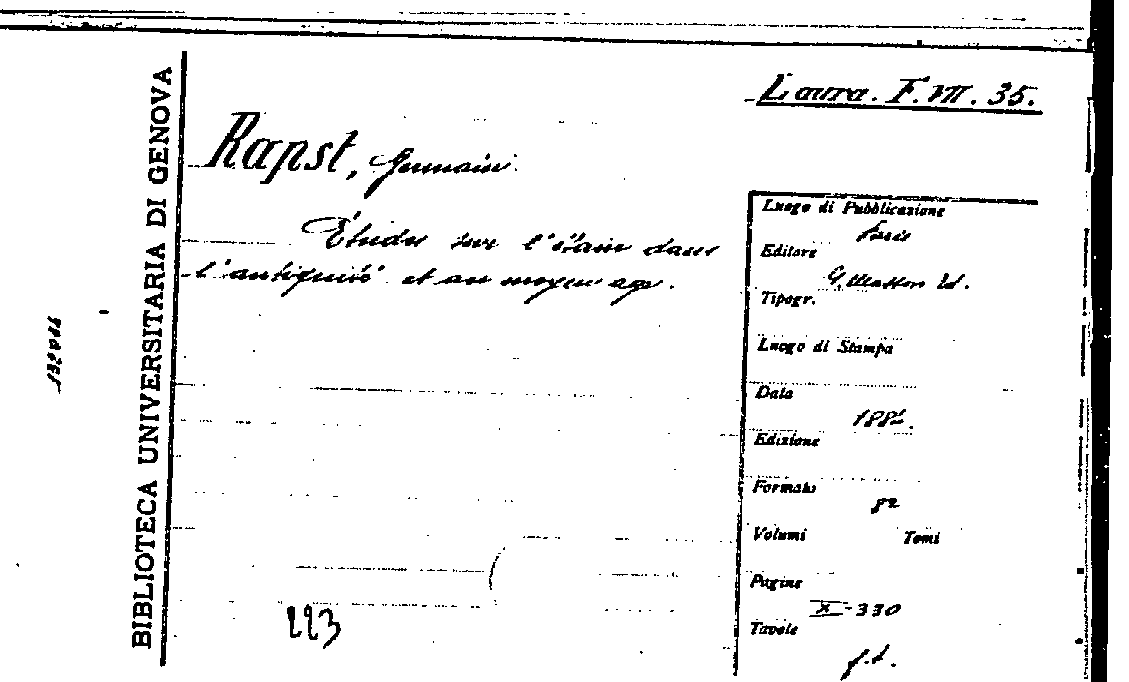 Laura. F. VII. 35.
BIBLIOTECA UNIVERSITARIA DI GENOVA
Rapst, Germain.
Étude sur l'étain dans
l'antiquité et au moyen age.
Luogo di Pubblicazione
Paris
Editore
G. Masson Ed.
Tipogr.
Luogo di Stampa
Data
Edizione
Formato
Volumi Tomi
Pagine
X-330
Tavole
f.t.
223